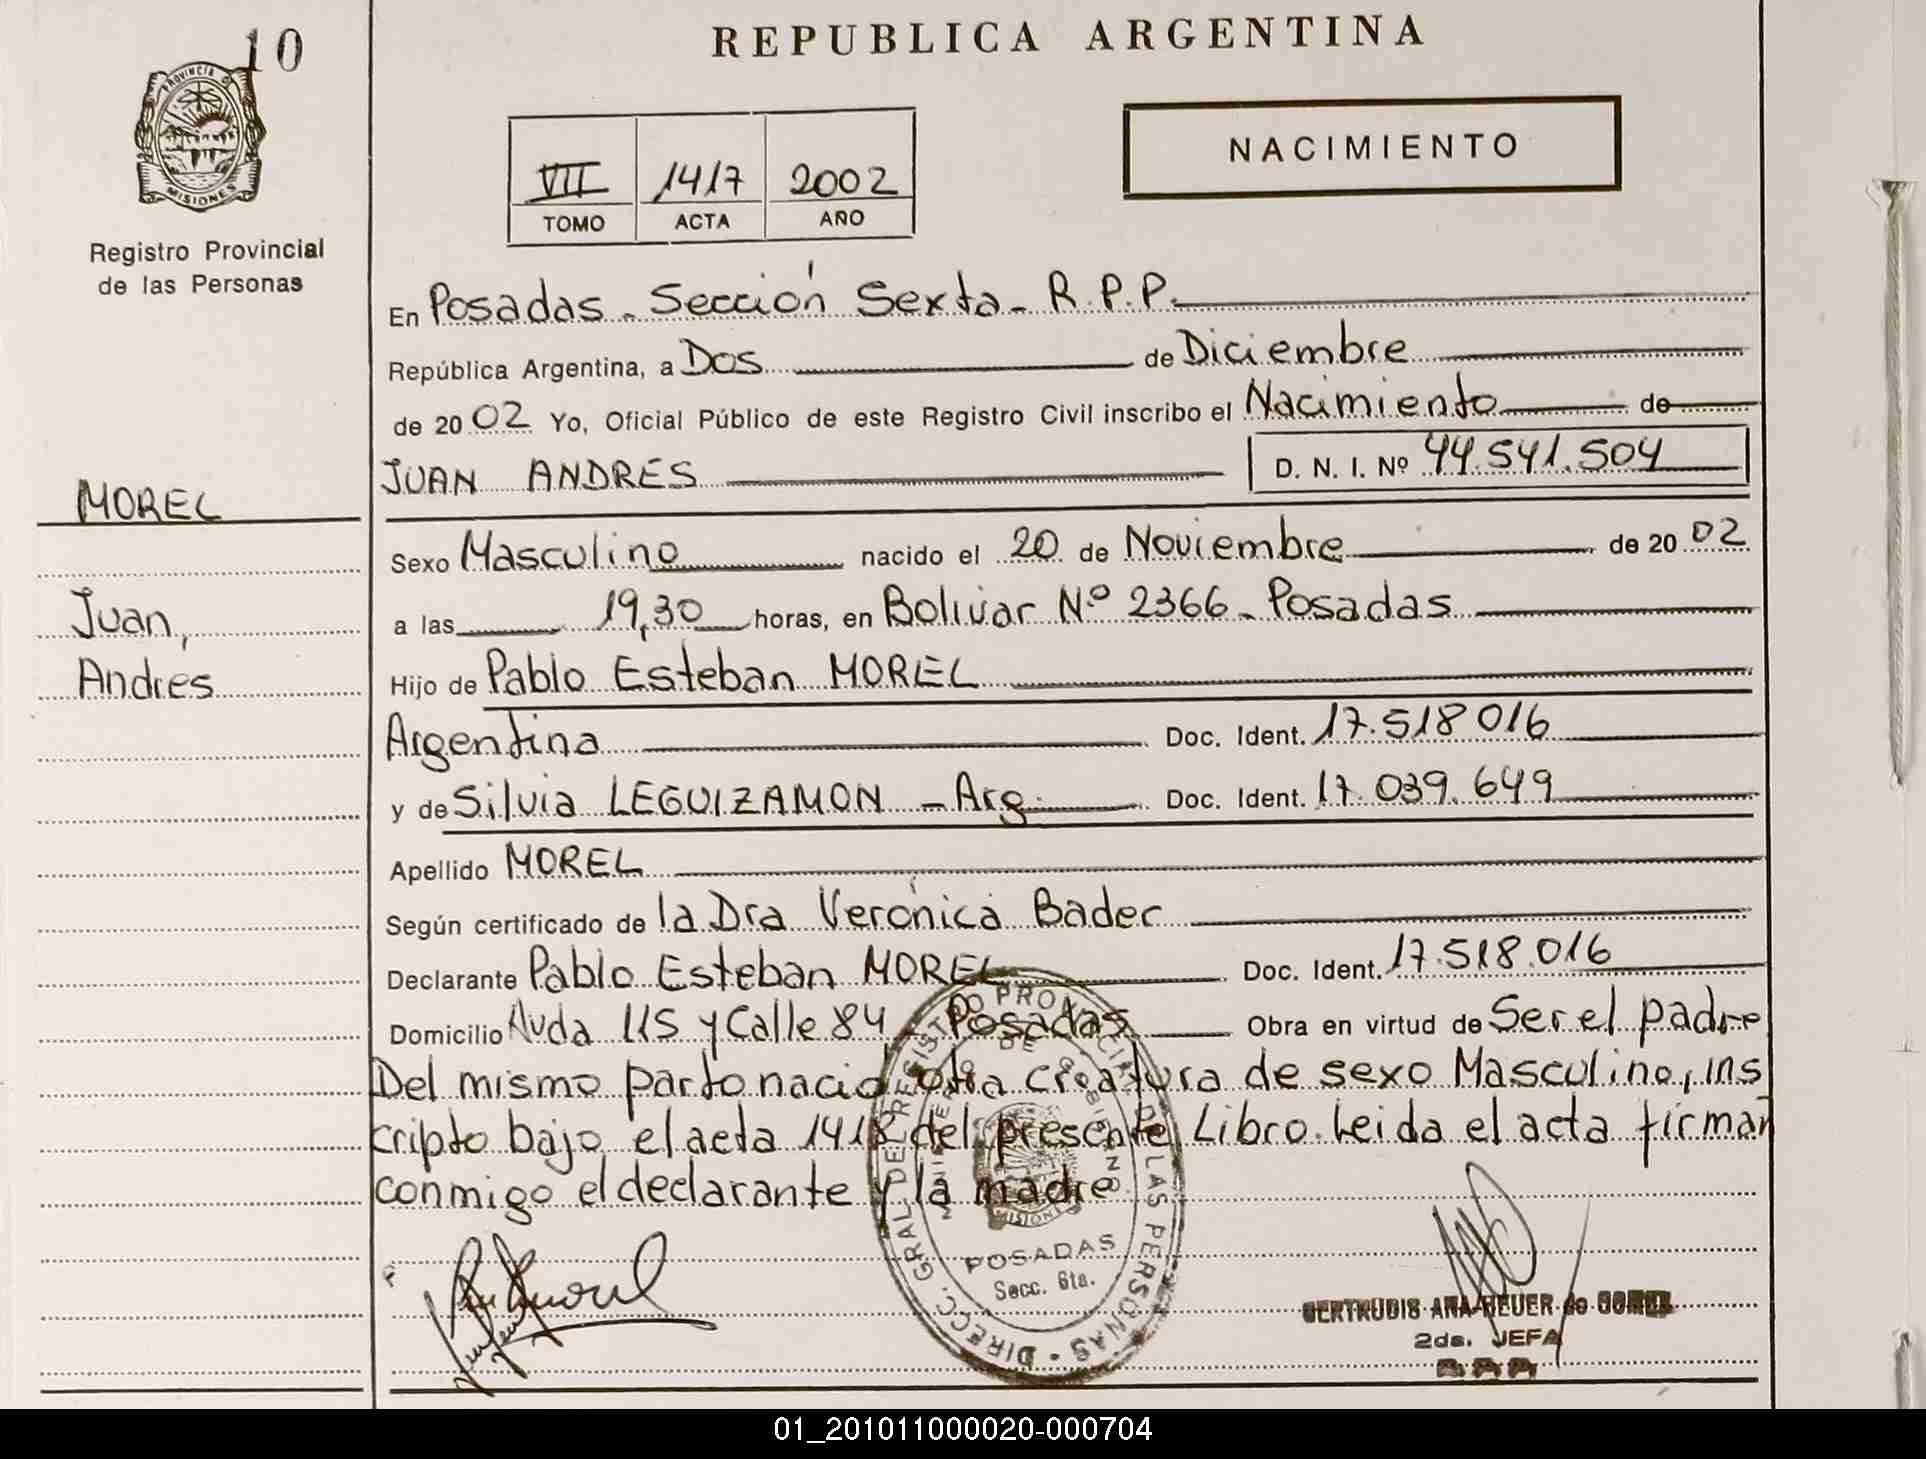 10
REPUBLICA ARGENTINA
PROVINCIA DE
MISIONES
Registro Provincial
de las Personas
VII 1417 2002
TOMO ACTA AÑO
NACIMIENTO
En Posadas - Sección Sexta - R.P.P.
República Argentina, a Dos de Diciembre
de 2002 Yo, Oficial Público de este Registro Civil inscribo el Nacimiento de
JUAN ANDRES D. N. I. Nº 44.541.504
MOREL
Juan,
Andres
Sexo Masculino nacido el 20 de Noviembre de 2002
a las 19,30 horas, en Bolivar Nº 2366 - Posadas
Hijo de Pablo Esteban MOREL
Argentina Doc. Ident. 17.518016
y de Silvia LEGUIZAMON - Arg. Doc. Ident. 17.039.649
Apellido MOREL
Según certificado de la Dra Verónica Bader
Declarante Pablo Esteban MOREL Doc. Ident. 17.518.016
Domicilio Avda 115 y Calle 84 - Posadas Obra en virtud de Ser el padre
Del mismo parto nació otra creatura de sexo Masculino, ins
cripto bajo el acta 1418 del presente Libro. Leida el acta firman
conmigo el declarante y la madre
DIRECC. GRAL. DEL REGISTRO PROVINCIAL DE LAS PERSONAS
MINISTERIO DE GOBIERNO
MISIONES
POSADAS
Secc. 6ta.
GERTRUDIS ANA de
2da. JEFA
01_201011000020-000704